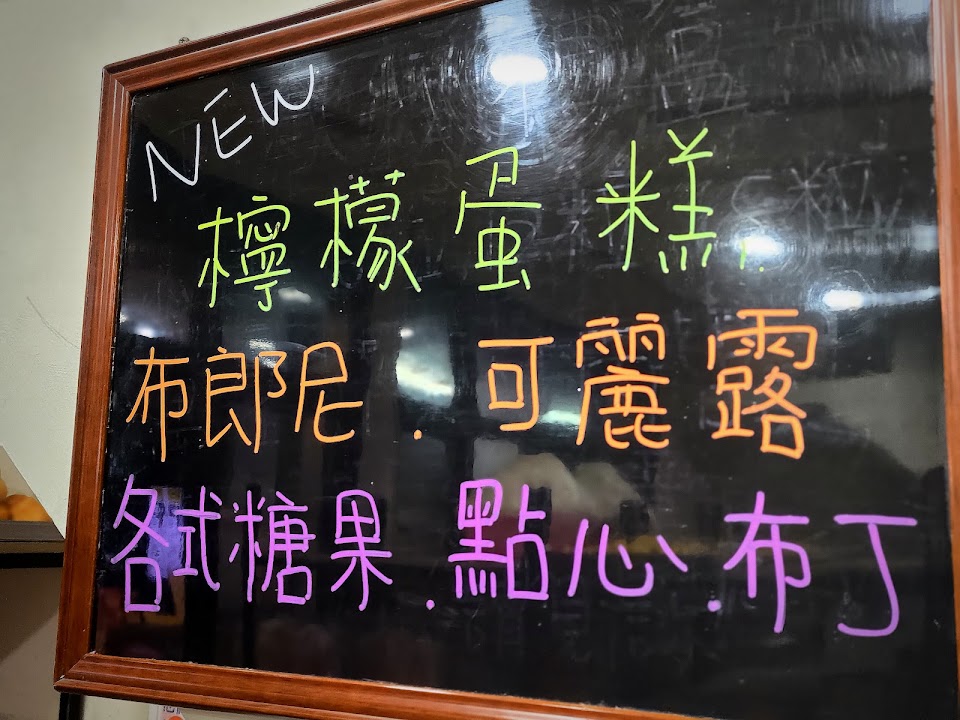 NEW
檸檬蛋糕
布郎尼.可麗露
各式糖果.點心.布丁